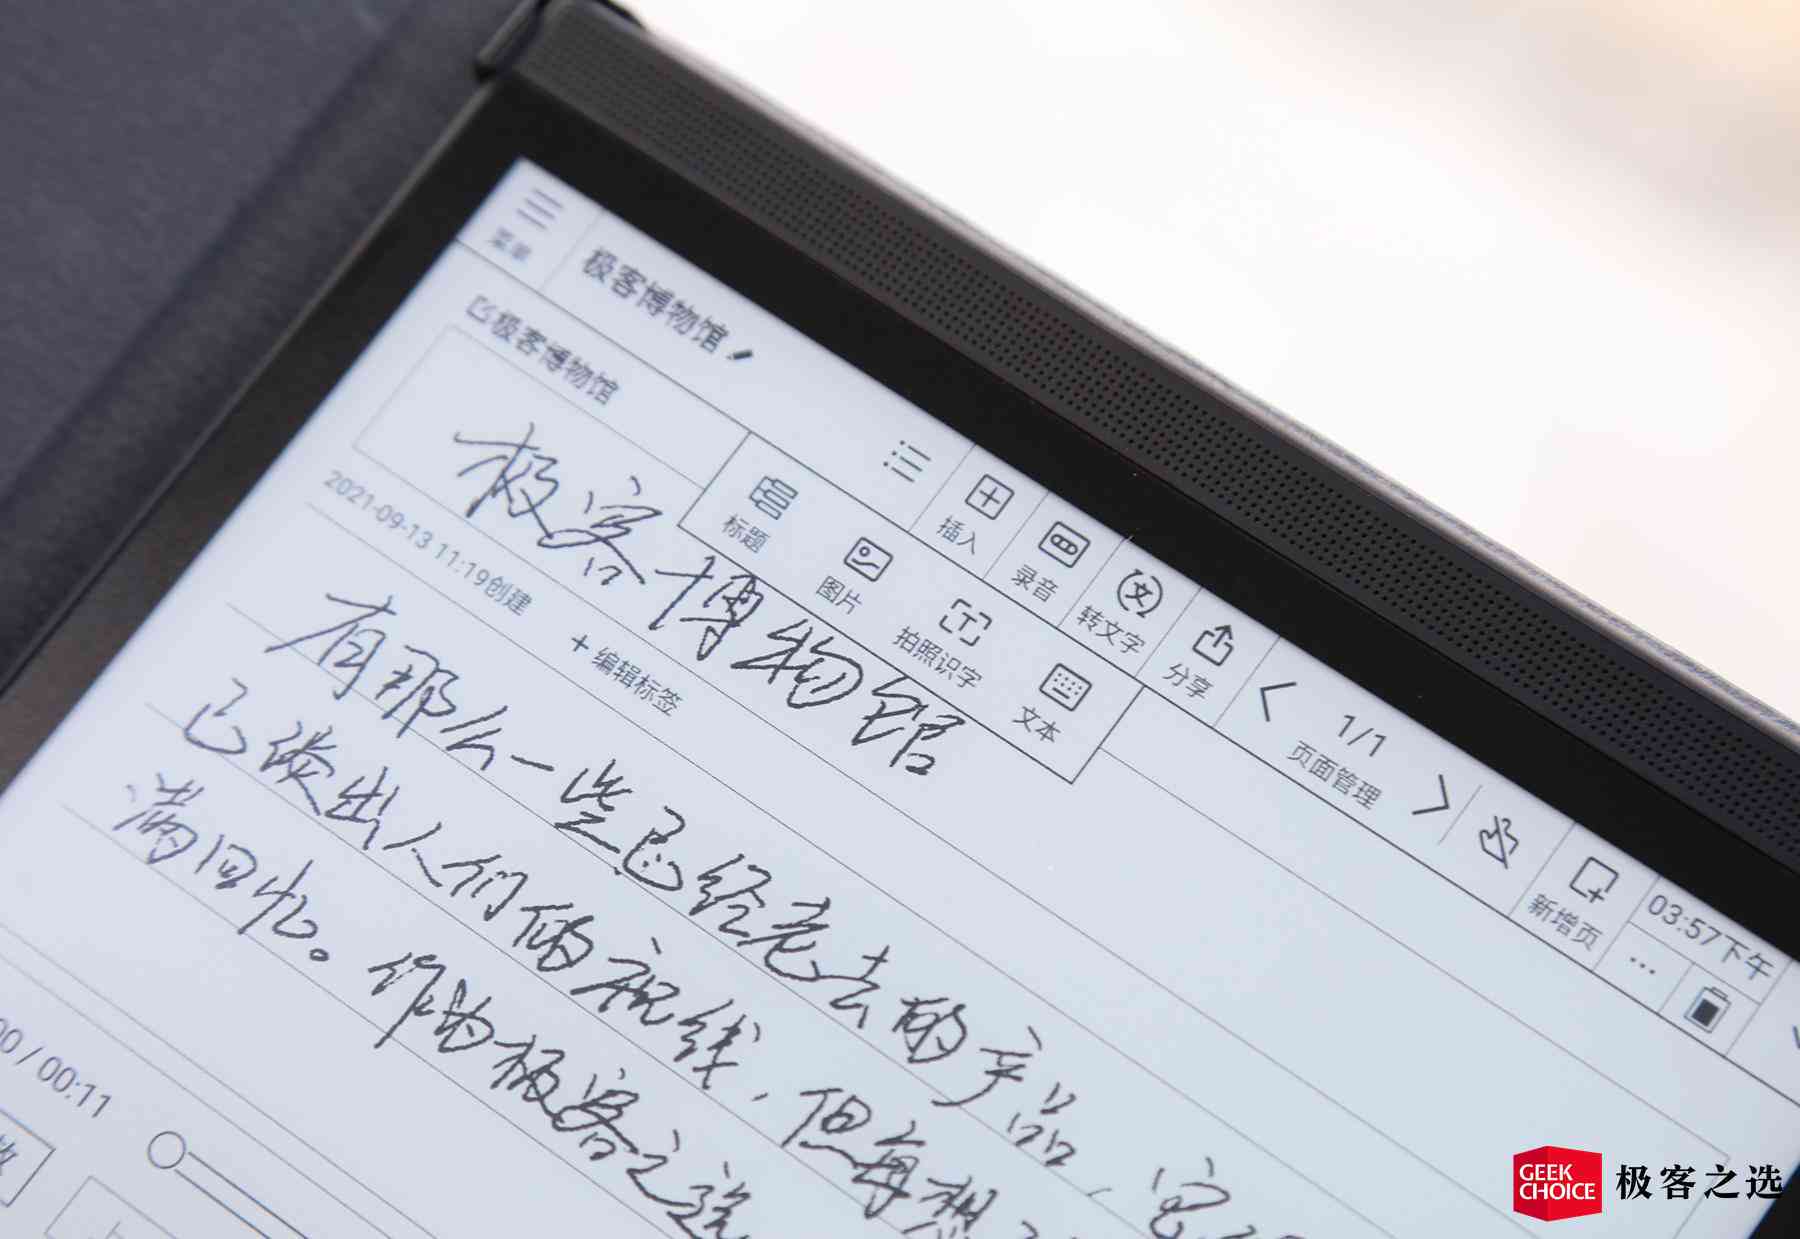 菜单
极客博物馆
插入
录音
转文字
分享
1/1
页面管理
新增页
03:57下午
极客博物馆
标题
图片
拍照识字
文本
极客博物馆
2021-09-13 11:19创建
+ 编辑标签
有那么一些已经老去的产品，它
已淡出人们的视线，但每想
满回忆。作为极客之选
/ 00:11
GEEK
CHOICE
极客之选